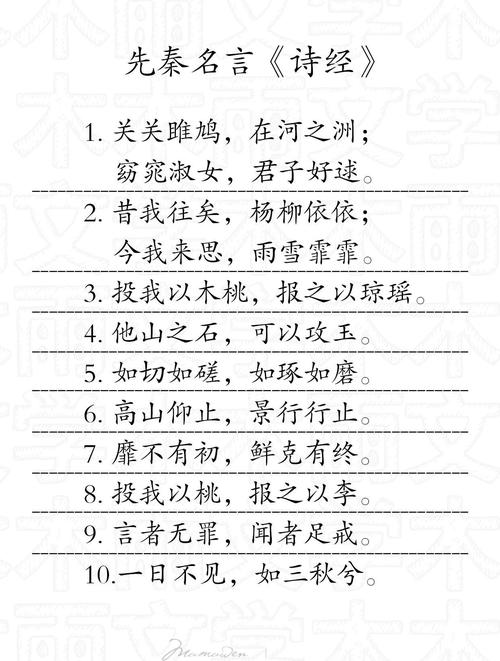 先秦名言《诗经》
1. 关关雎鸠，在河之洲；
窈窕淑女，君子好逑。
2. 昔我往矣，杨柳依依；
今我来思，雨雪霏霏。
3. 投我以木桃，报之以琼瑶。
4. 他山之石，可以攻玉。
5. 如切如磋，如琢如磨。
6. 高山仰止，景行行止。
7. 靡不有初，鲜克有终。
8. 投我以桃，报之以李。
9. 言者无罪，闻者足戒。
10.一日不见，如三秋兮。